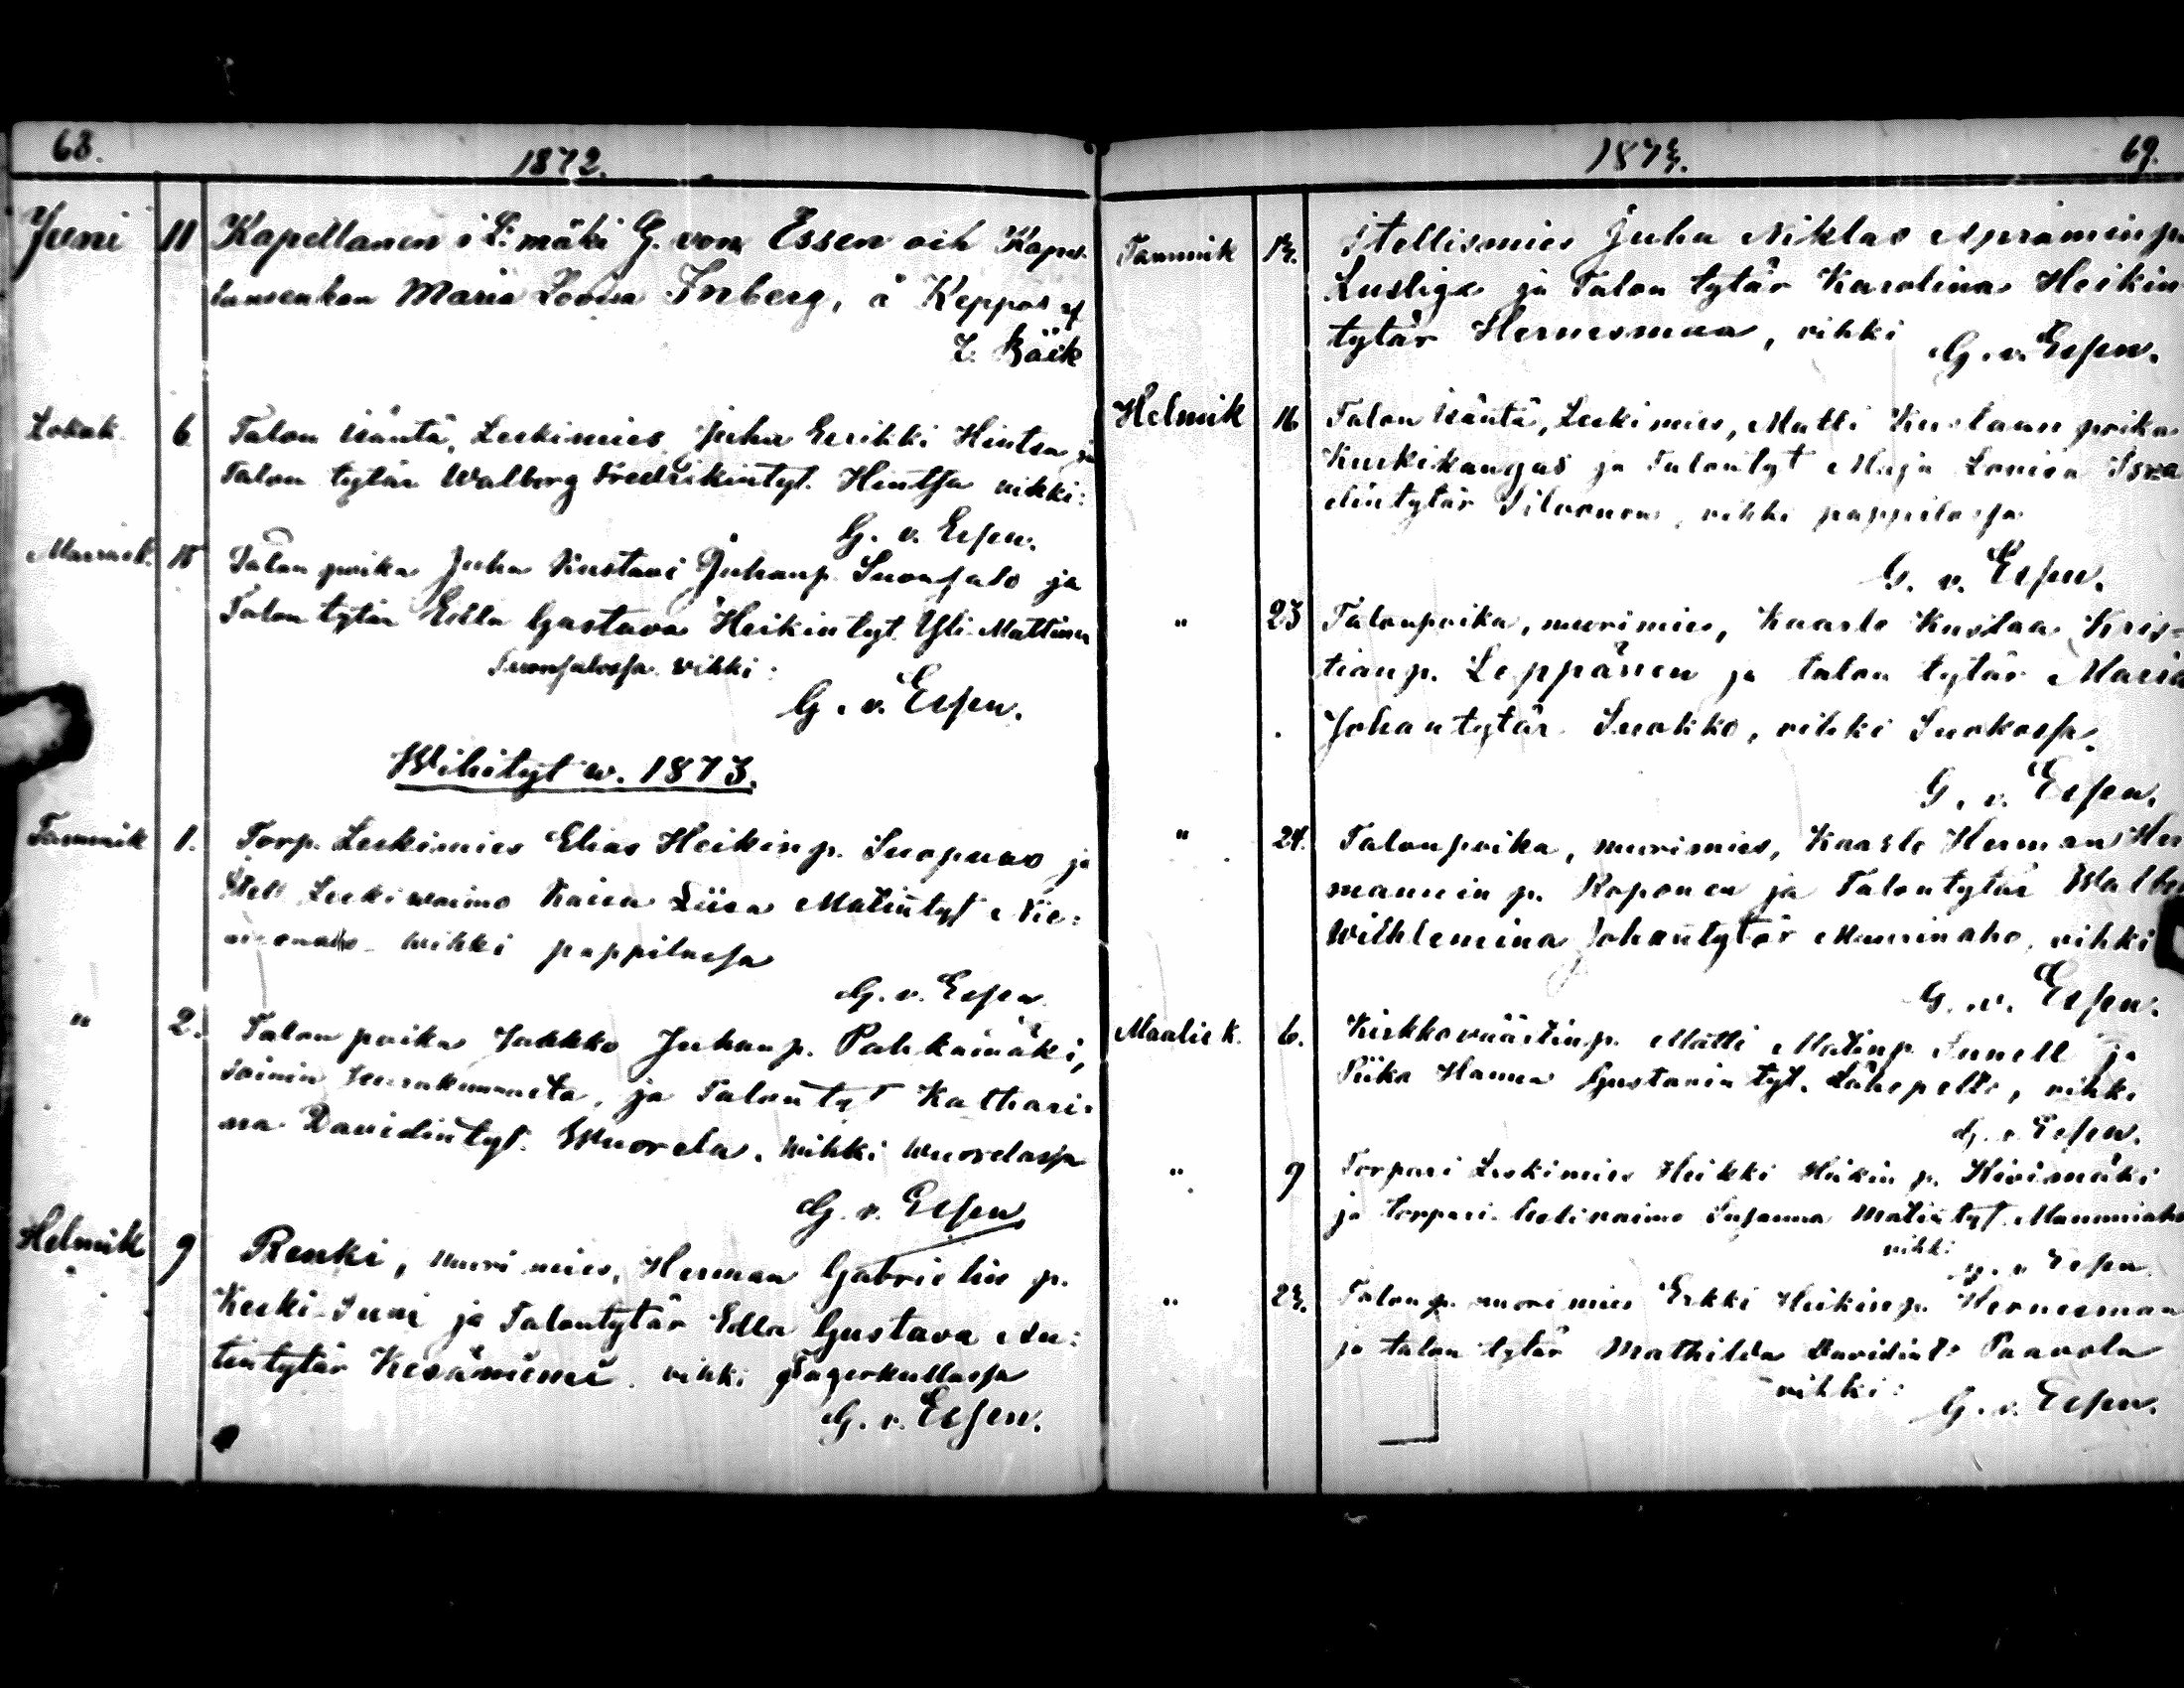 68.
1872.
Juni 11 Kapellanen i L:mäki G. von Essen och Kapel-
lansenkan Maria Lovisa Inberg, å Keppos af
Z. Bäck
Lokak. 6 Talon isäntä, Leskimies Juha Eerikki Hintsa ja
Talon tytär Walborg Fredrikintyt. Hintsa vihki:
G. v. Essen.
Marrask. 18 Talon poika Juha Kustavi Juhanp. Luonsalo ja
Talon tytär Edla Gustava Heikintyt. Yli-Mattinen
vihki:
G. v. Essen.
Wihityt w. 1873.
Tammik 1. Torp. Leskimies Elias Heikinp. Suopuro ja
Leskiwaimo Kaisa Liisa Matintyt Nie:
wihki pappilassa
G. v. Essen
" 2. Talon poika Jakko Juhanp. Pahkamäki,
Soinin seurakunnasta, ja Talontyt Kathari-
na Davidintyt. Wuorela. wihki Wuorelassa
G. v. Essen
Helmik 9 Renki, nuori mies, Herman Gabrielin p.
Keski-Suni ja Talontytär Edla Gustava An:
tintytär Kesäniemi. vihki Fagerkullassa
G. v. Essen.
1873.
69.
Tammik Itellismies Juha Niklas
ja Talon tytär Karolina Heikin
tytär Hernesmaa, vihki
G. v. Essen.
Helmik 16 Talon isäntä, Leskimies, Matti Kustaan poika
Kurkikangas ja Talontyt Maja Lovisa Isra
elintytär vihki pappilassa
G. v. Essen.
" 23 Talonpoika, nuorimies, Kaarlo Kustaa Kris-
tianp. Leppänen ja talon tytär Maria
Johantytär Suokko, vihki Suokossa.
G. v. Essen.
" 24. Talonpoika, nuorimies, Kaarlo Herman Her
mannin p. Roponen ja Talontytär Walbo
Wilhlemina Johantytär vihki
G. v. Essen.
Maalisk. 6. Kirkkoväärtinp. Matti Matinp. Sunell ja
Piika Hanna Gustavin tyt. Lähepelto, vihki
G. v. Essen.
" 9 Torpari Leskimies Heikki Heikin p. Hirvimäki
ja torpari leskivaimo Susanna Matintyt.
vihki
G. v. Essen.
" 23. Talonp. nuori mies Erkki Heikinp. Hernesmaa
ja talon tytär Mathilda Davidint. Paavola
vihki:
G. v. Essen.